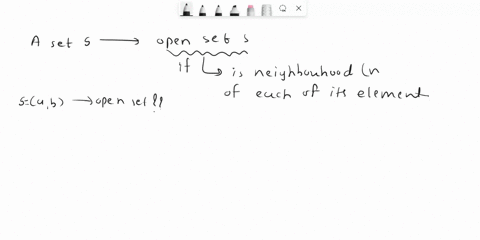 A set S ⟶ open set s
if ↳ is neighbouhood (n
of each of its element
S=(a,b) ⟶ open set !!